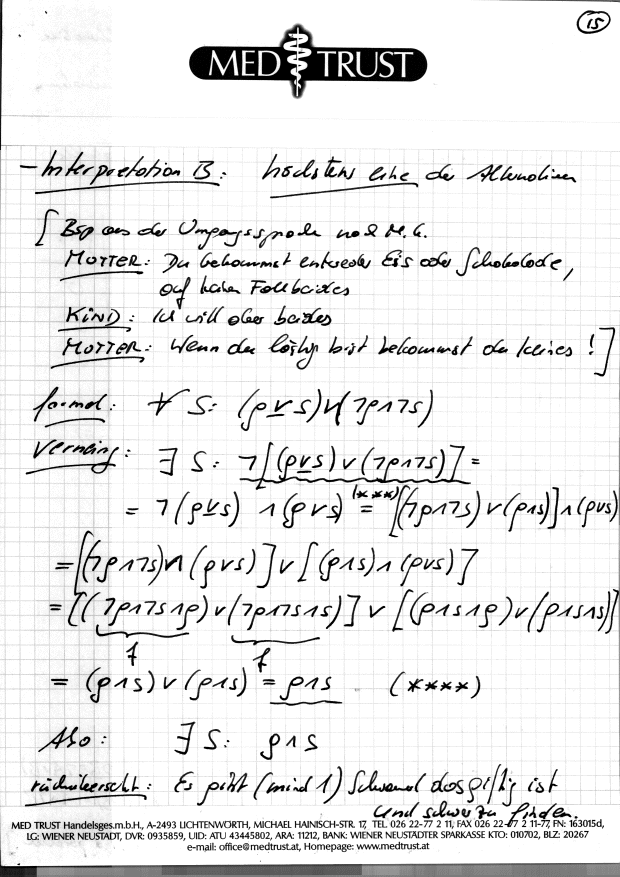 15
MED TRUST
- Interpretation B: höchstens eine der Alternativen
[Bsp aus der Umgangssprache nach M. G.
MUTTER: Du bekommst entweder Eis oder Schokolade,
auf keinen Fall beides
KIND: Ich will aber beides
MUTTER: Wenn du lästig bist bekommst du keines!]
formal: ∀ S: (p ∨ s) ∨ (¬p∧¬s)
Verneing: ∃ S: ¬[(p ∨ s) ∨ (¬p∧¬s)] =
= ¬(p ∨ s) ∧ (p ∨ s) (***) = [(¬p∧¬s) ∨ (p∧s)] ∧ (p∨s)
= [(¬p∧¬s) ∧ (p ∨ s)] ∨ [(p∧s) ∧ (p∨s)]
= [(¬p∧¬s∧p) ∨ (¬p∧¬s∧s)] ∨ [(p∧s∧p) ∨ (p∧s∧s)]
f f
= (p∧s) ∨ (p∧s) = p∧s (****)
Also: ∃ S: p∧s
rückübersetzt: Es gibt (mind 1) Schwamml das giftig ist
und schwer zu finden.
MED TRUST Handelsges.m.b.H., A-2493 LICHTENWÖRTH, MICHAEL HAINISCH-STR. 17, TEL. 026 22-77 2 11, FAX 026 22-77 2 11-77, FN: 163015d,
LG: WIENER NEUSTADT, DVR: 0935859, UID: ATU 43445802, ARA: 11212, BANK: WIENER NEUSTÄDTER SPARKASSE KTO: 010702, BLZ: 20267
e-mail: office@medtrust.at, Homepage: www.medtrust.at